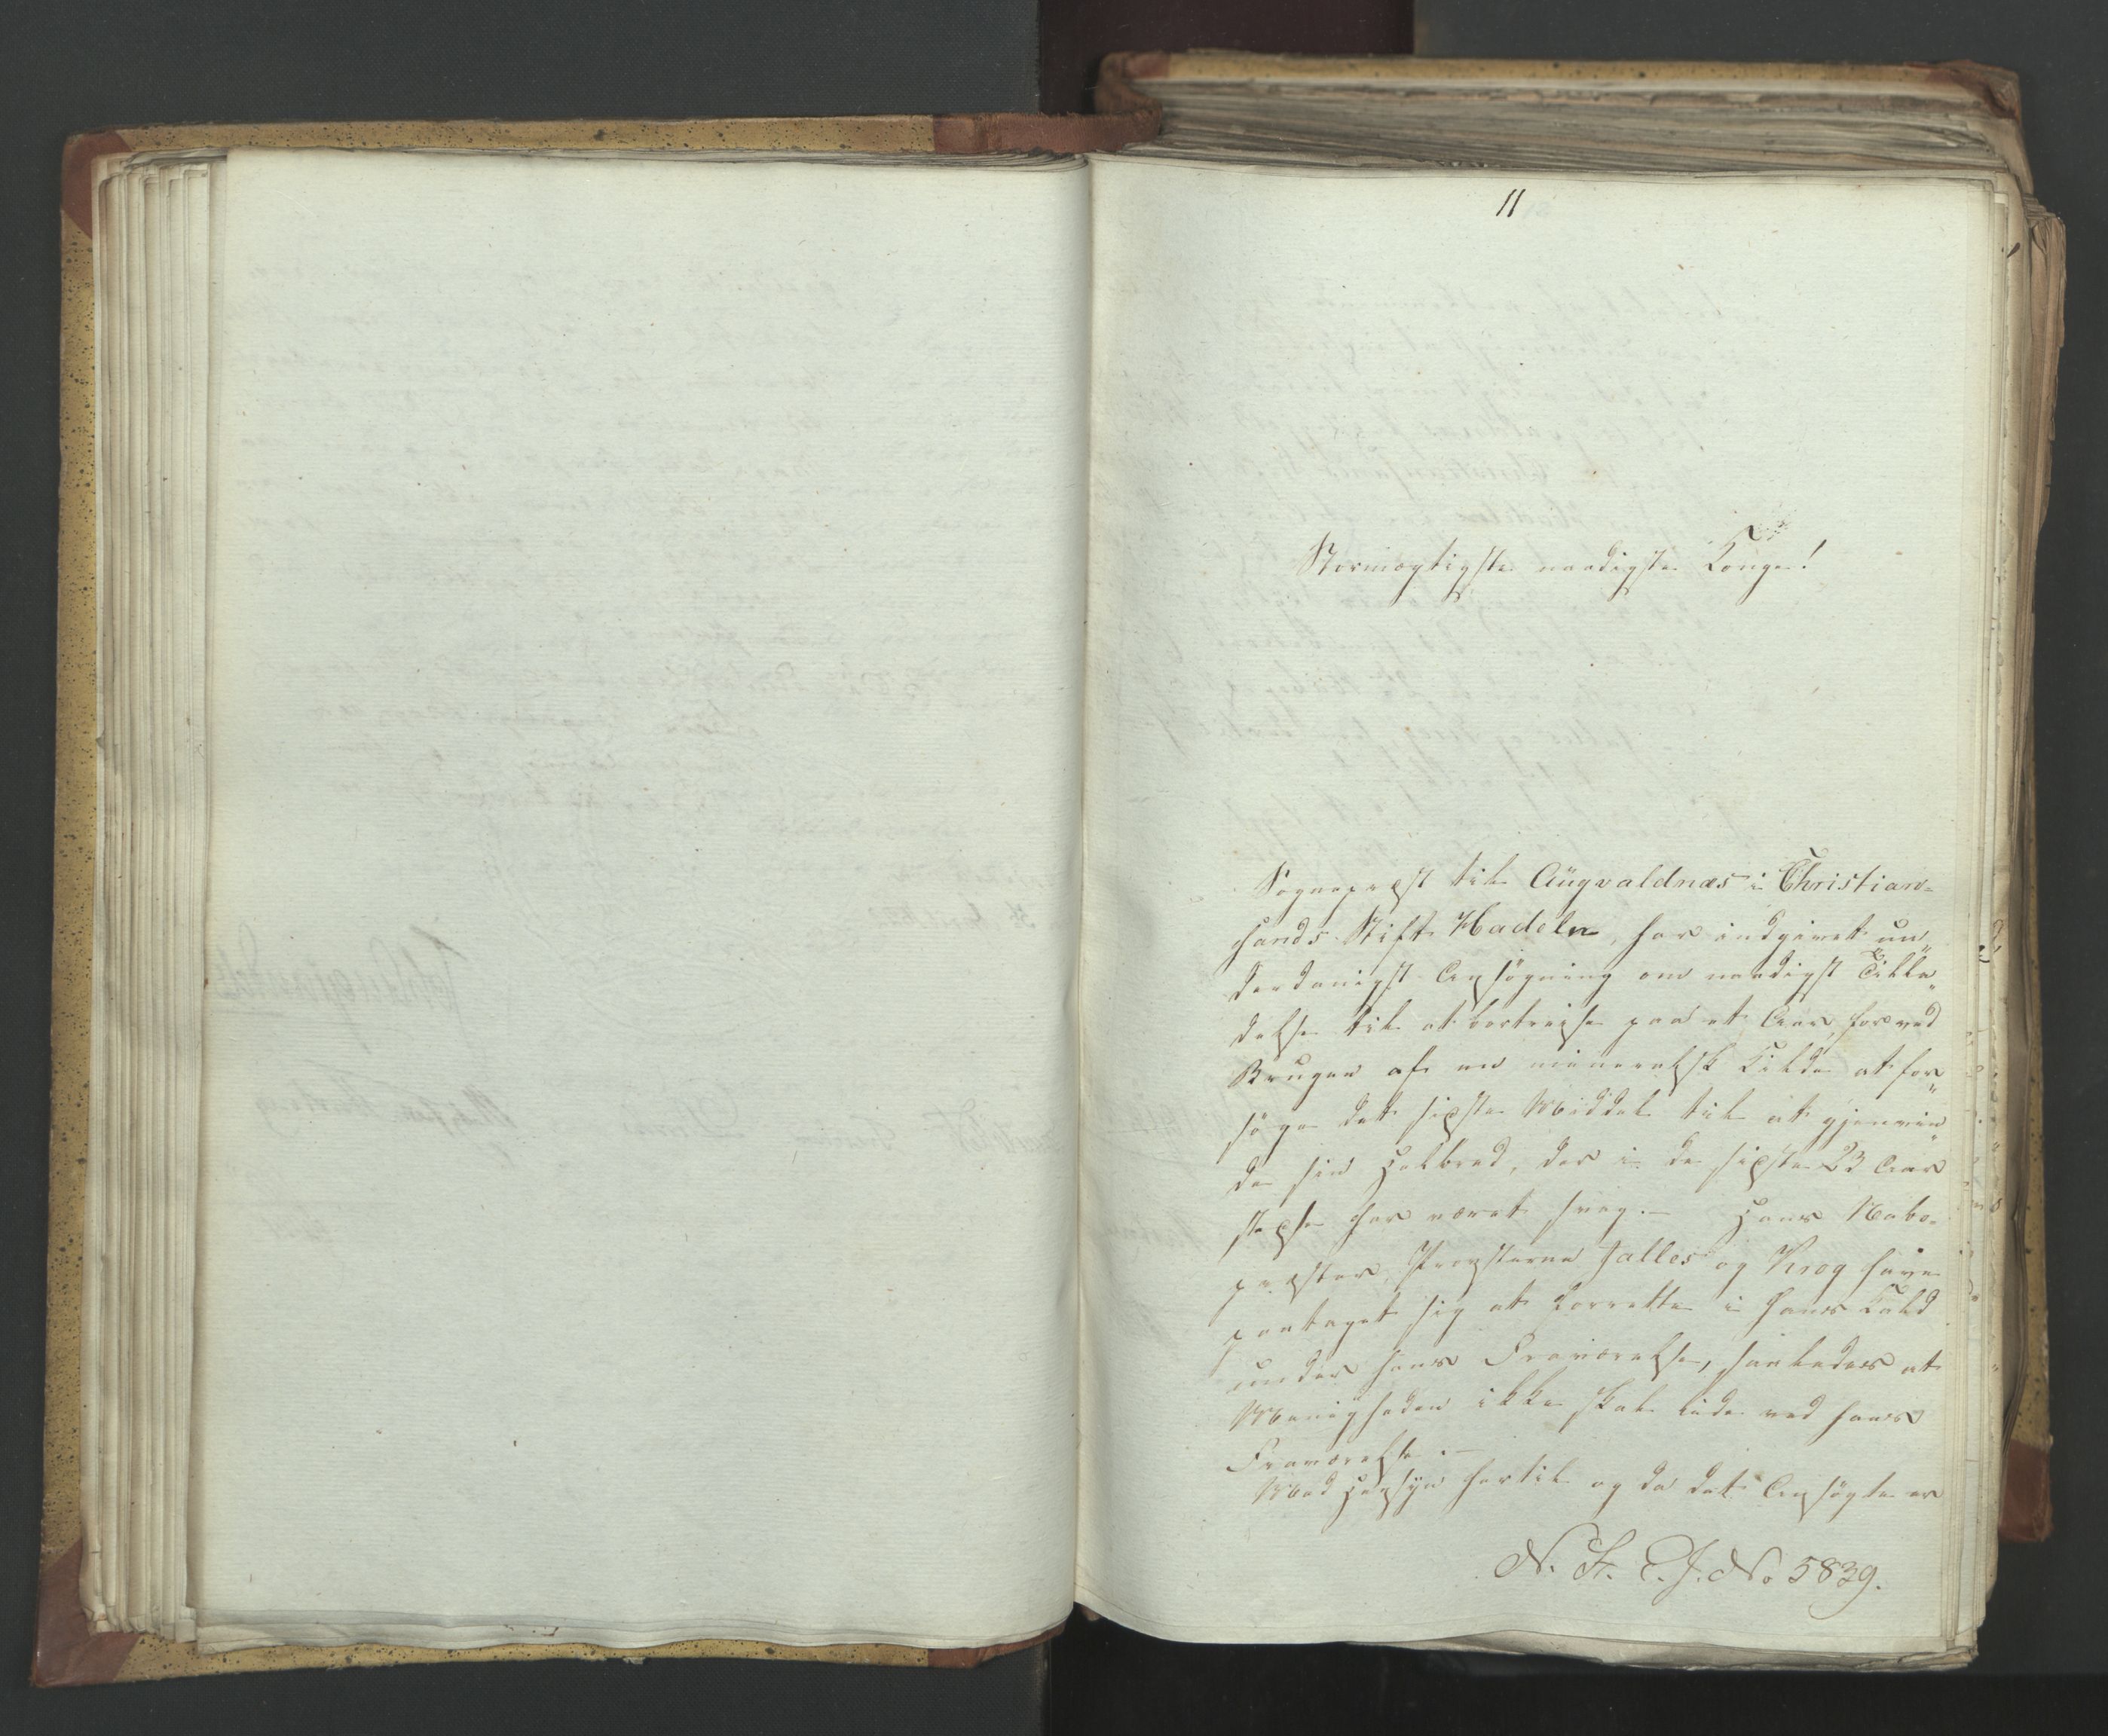 11
Stormægtigste naadigste Konge!
Sognepræst til Augvaldnæs i Christian-
sands Stift Hadeln, har indgivet un„
derdanigst Ansøgning om naadigst Tilla„
delse til at bortreise paa et Aar, for ved
Brugen af en mineralsk Kilde at for„
søge det sidste Middel til at gjenvin„
de sin Helbred, der i de sidste 23 Aar
stedse har været svag.— Hans Nabo-
præster, Provsterne Jalles og Krog have
paataget sig at forrette i hans Kald
under hans Fraværelse, saaledes at
Menigheden ikke skal lide ved hans
Fraværelse.—
Med Hensyn hertil og da det Ansøgte er
N. K. E. J. No 5839.